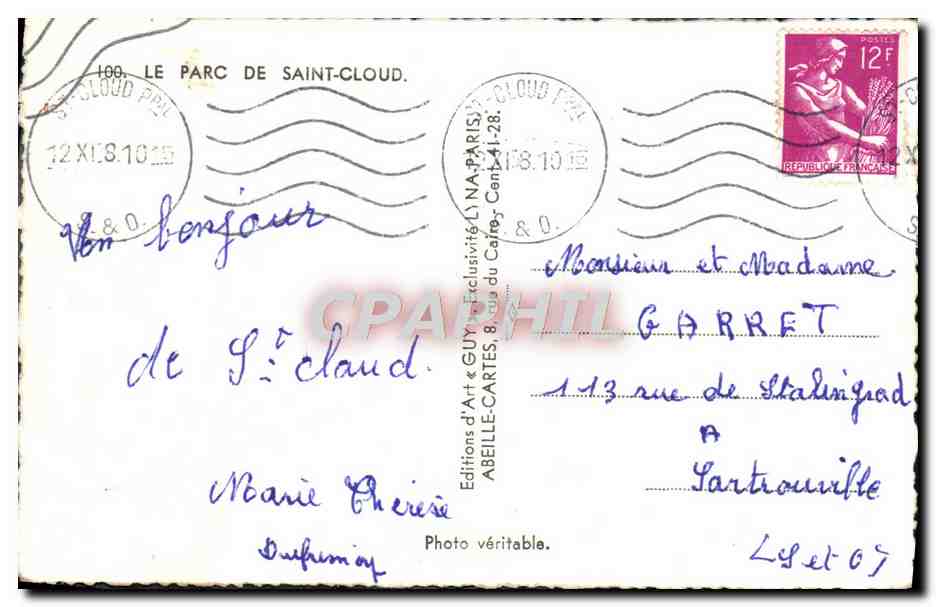 100. LE PARC DE SAINT-CLOUD.
ST-CLOUD PPAL
12 XI 8.10
S. & O.
ST-CLOUD PPAL
12 XI 8.10
S. & O.
POSTES
12F
REPUBLIQUE FRANÇAISE
Un bonjour
de St claud.
Marie Thérèse
Editions d'Art « GUY » - Exclusivité LYNA-PARIS
ABEILLE-CARTES, 8, rue du Caire, Cent. 41-28.
Monsieur et Madame
GARRET
113 rue de Stalingrad
A
Sartrouville
S et O
Photo véritable.
CPAPHIL